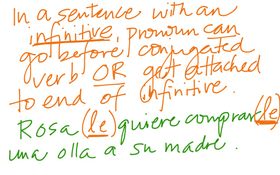 In a sentence with an
infinitive, pronoun can
go before conjugated
verb OR get attached
to end of infinitive.
Rosa (le) quiere comprar(le)
una olla a su madre.